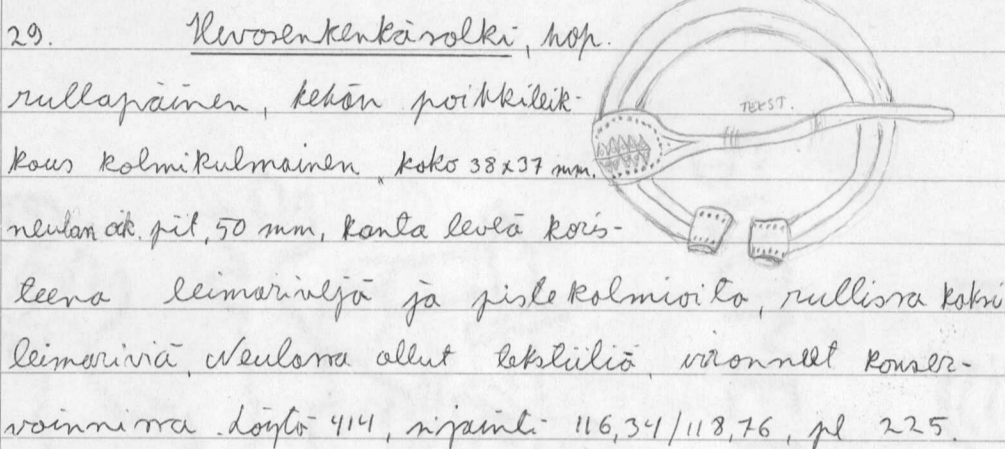 29. Hevosenkenkäsolki, hop.
rullapäinen, kehän poikkileik-
kaus kolmikulmainen, koko 38x37 mm.
neulan pit. 50 mm, kanta leveä koris-
teena leimarivejä ja pistekolmioita, rullissa kaksi
leimariviä. Neulassa ollut tekstiiliä, irronneet konser-
voinnissa. Löytö 414, sijainti 116,34/118,76, pl 225.
TEKST.